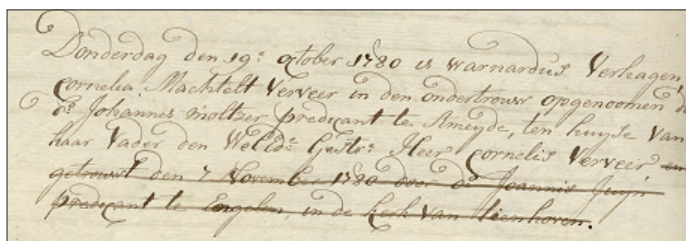 Donderdag den 19e october 1780 is Warnardus Verhagen,
Cornelia Machtelt Verveer in den ondertrouw opgenoomen
ds Johannes moltzer predicant te Ameyde, ten huyse van
haar Vader den WelEdn Gestr: Heer Cornelis Verveer en
getrouwt den 7 November 1780 door ds Joannis
predicant te Engelen, in de kerk van tienhoven.